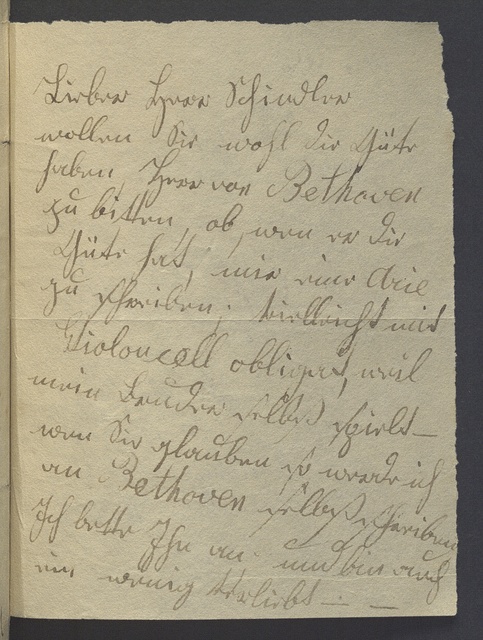 Lieber Herr Schindler
wollen Sie wohl die Güte
haben, Herr von Bethoven
zu bitten, ob, wen er die
Güte hat, mir eine Arie
zu schreiben; vielleicht mit
Violoncell obligat, weil
mein Bruder selbst spielt —
wen Sie glauben so werde ich
an Bethoven selbst schreiben
Ich bette Ihn an. und bin auch
ein wenig verliebt — —